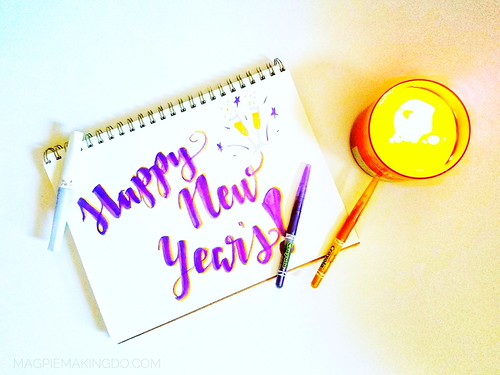 Happy
New
Year's!
Crayola
Crayola
MAGPIEMAKINGDO.COM